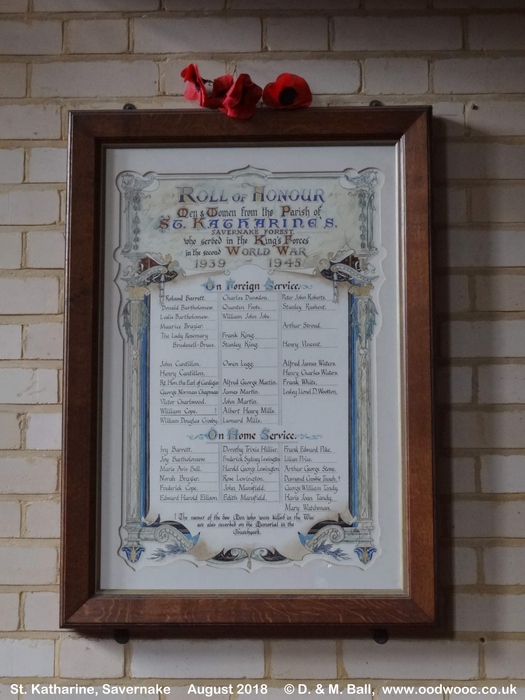 ROLL OF HONOUR
Men & Women from the Parish of
ST. KATHARINE'S.
SAVERNAKE FOREST,
who served in the King's Forces
in the second WORLD WAR
1939 1945
On Foreign Service.
Roland Barrett.
Donald Bartholomew.
Leslie Bartholomew.
Maurice Brayler.
The Lady Rosemary
Brudenell-Bruce.
John Cantillon.
Henry Cantillon.
Rt. Hon. the Earl of Cardigan
George Norman Chapman
Victor Chartwood.
William Cope. !
William Douglas Crosby.
Charles Dowdem.
Quenton Foote.
William John Jobe.
Frank King.
Stanley King.
Owen Legg.
Alfred George Martin.
James Martin.
John Martin.
Albert Henry Mills.
Leonard Mills.
Peter John Roberts.
Stanley
Arthur Stroud.
Henry Vincent.
Alfred James Waters.
Henry Charles Waters.
Frank White.
Lesley Lionel D. Wootten.
On Home Service.
Ivy Barrett.
Joy Bartholomew.
Maria Avis Ball.
Norah Brayler.
Frederick Cope.
Edward Harold Ellison
Dorothy Trixie Hillier.
Frederick Sydney Lewington
Harold George Lewington
Rose Lewington.
John Mansfield.
Edith Mansfield.
Frank Edward Pike.
Lilian Price.
Arthur George Stone.
Desmond Crosbie Tuach. !
George William Tandy.
Haris Joan Tandy.
Mary Watchman.
! The names of the two Men who were killed in the War
are also recorded on the Memorial in the
Churchyard.
St. Katharine, Savernake August 2018 © D. & M. Ball, www.oodwooc.co.uk